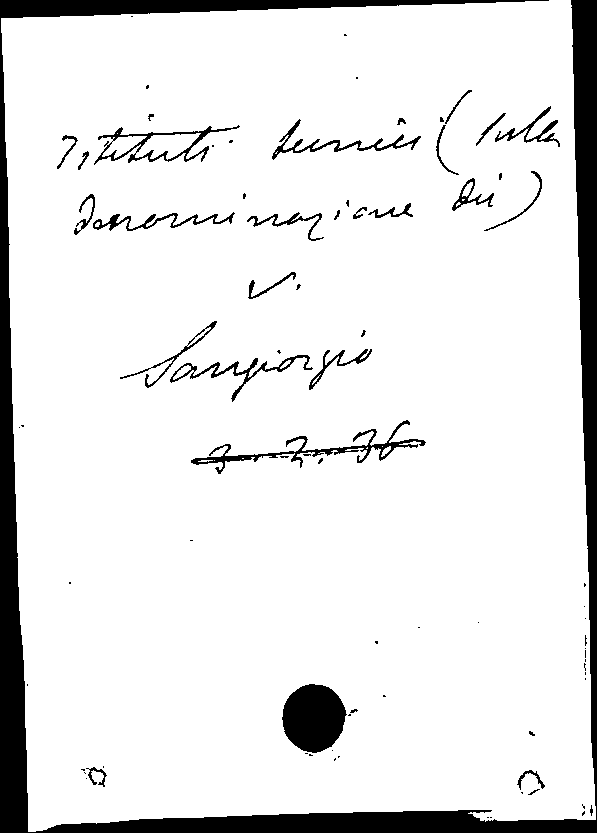 Istituti tecnici (sulla
denominazione dei)
v.
Sangiorgio
3.2.36